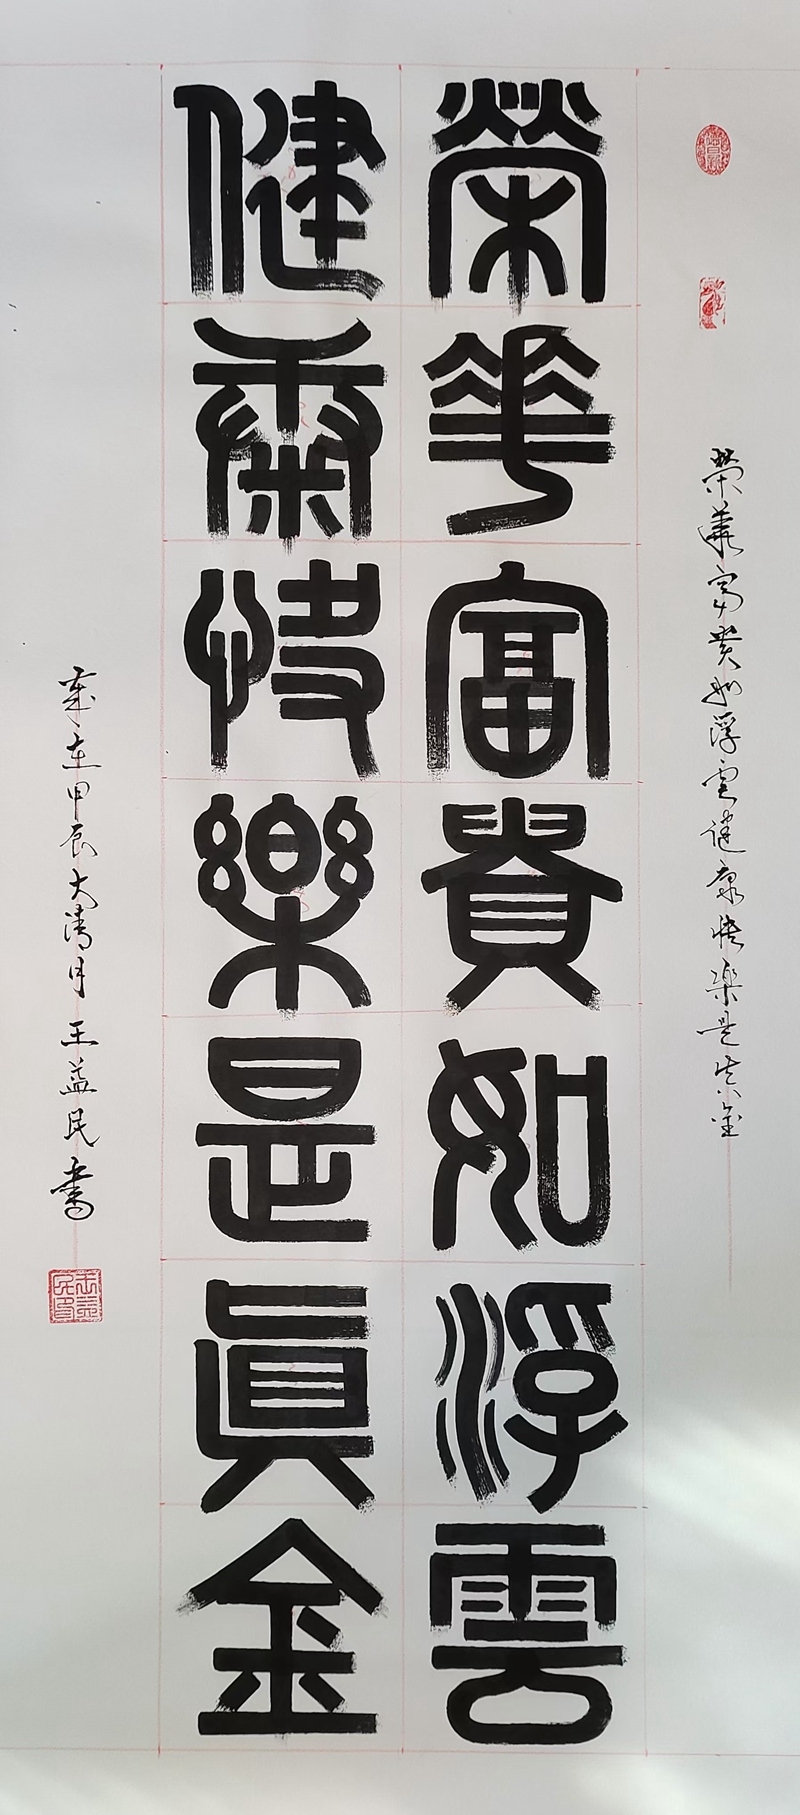 榮華富貴如浮雲
健康快樂是真金
榮華富貴如浮雲健康快樂是真金
歲在甲辰大清月王益民書